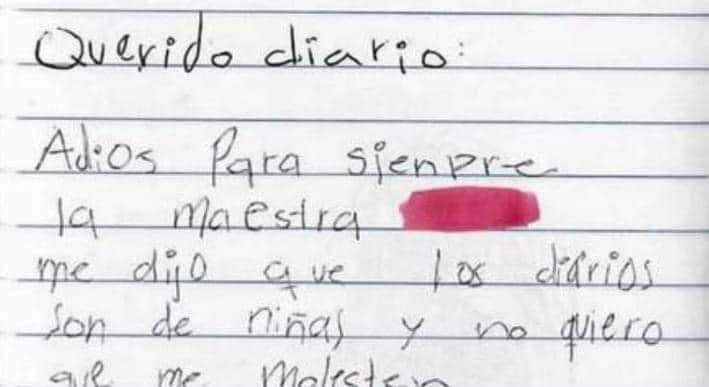 Querido diario:
Adios Para sienpre
la maestra
me dijo que los diarios
son de niñas y no quiero
que me molesten